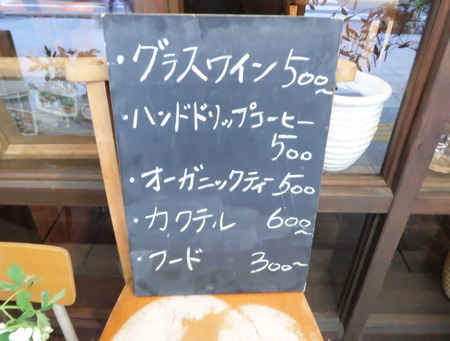 ・グラスワイン 500~
・ハンドドリップコーヒー
500
・オーガニックティー 500
・カクテル 600~
・フード 300~